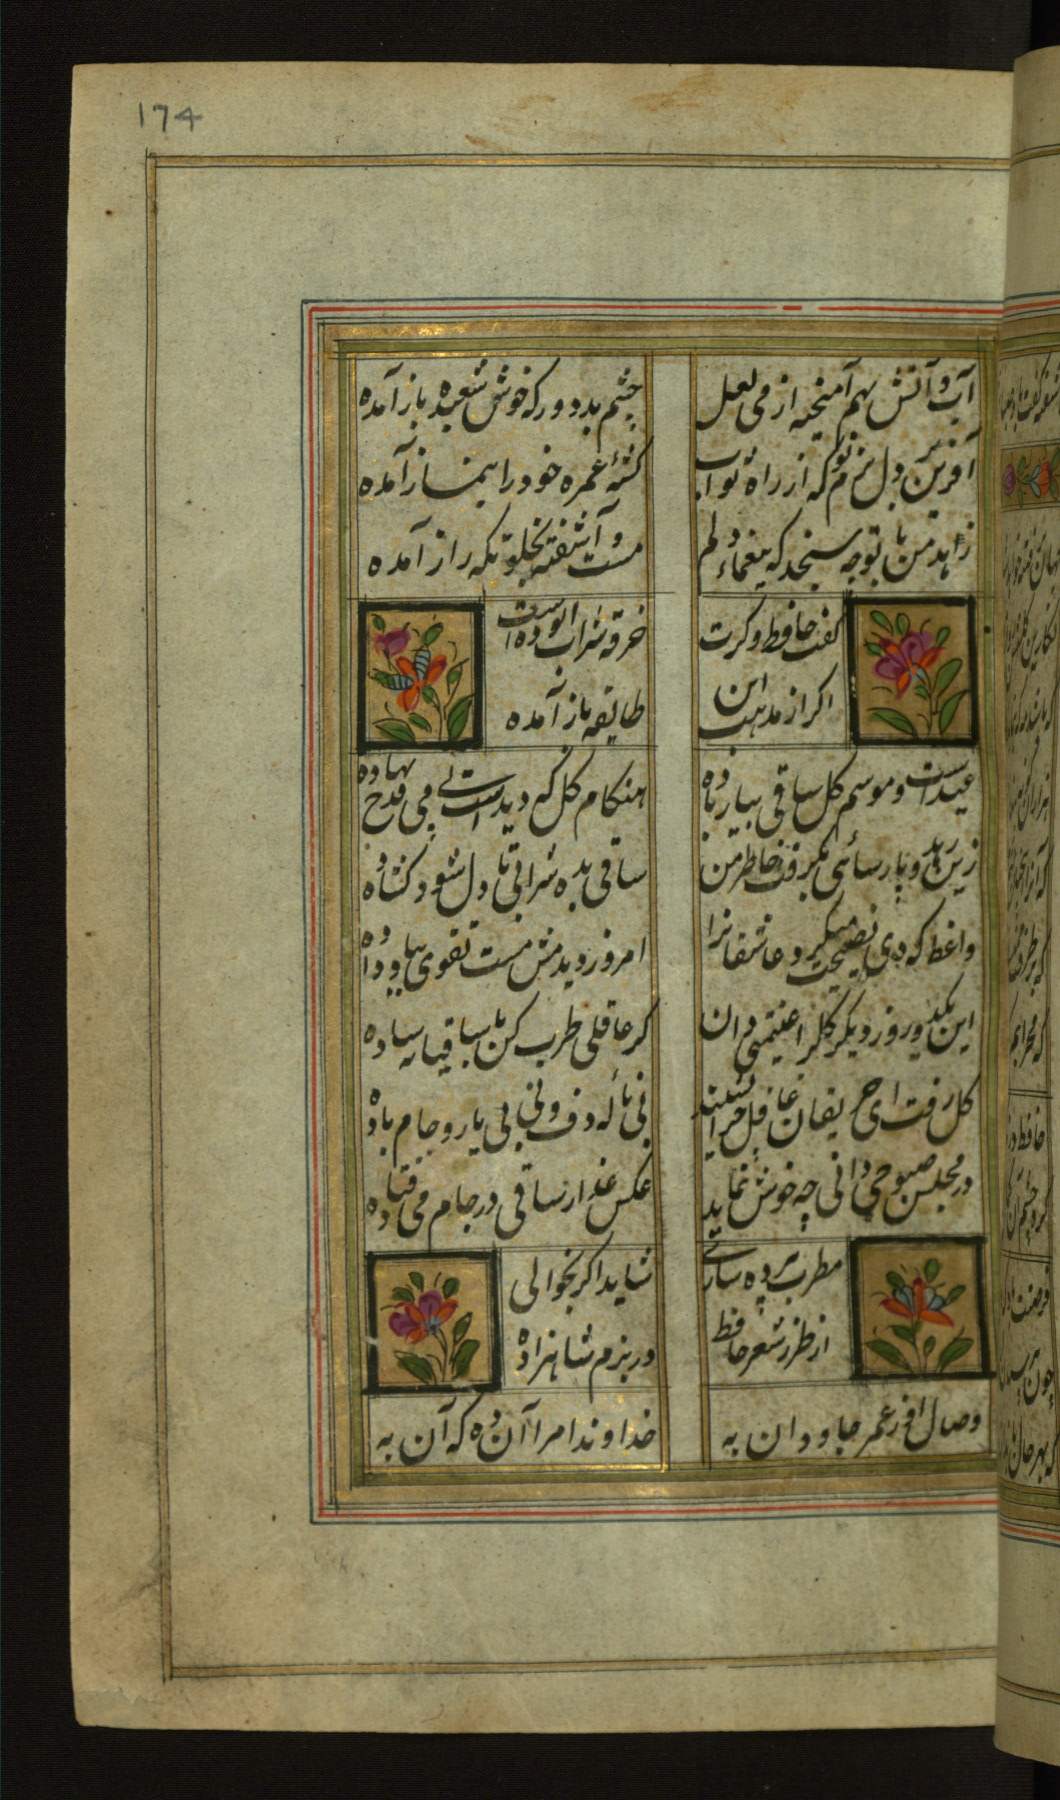 174
آب و آتش بهم آمیخته از می لعل
چشم بد دور که خوش شعبده باز آمده
آفرین بر دل نرم تو که از راه ثواب
کشته غمزه خود را بنماز آمده
زاهد من با تو چه سنجد که بیغمای دلم
مست و آشفته بخلوتگه راز آمده
گفت حافظ دگرت
خرقه شراب آلودست
اگر از مذهب این
طایفه باز آمده
عیدست و موسم گل ساقی بیار باده
هنگام گل که دیدست بی می قدح نهاده
زین زهد و پارسائی بگرفت خاطر من
ساقی بده شرابی تا دل شود گشاده
واعظ که دی نصیحت میکرد عاشقانرا
امروز دیدمش مست تقوی بباد داده
این یکدو روز دیگر گلرا غنیمتی دان
گر عاقلی طرب کن با ساقیان ساده
گل رفت ای حریفان غافل چرا نشینید
بی ناله دف و نی بی یار و جام باده
در مجلس صبوحی دانی چه خوش نماید
عکس عذار ساقی در جام می فتاده
مطرب چو پرده سازی
شاید اگر بخوانی
از طرز شعر حافظ
در بزم شاهزاده
وصال او ز عمر جاودان به
خداوندا مرا آن ده که آن به